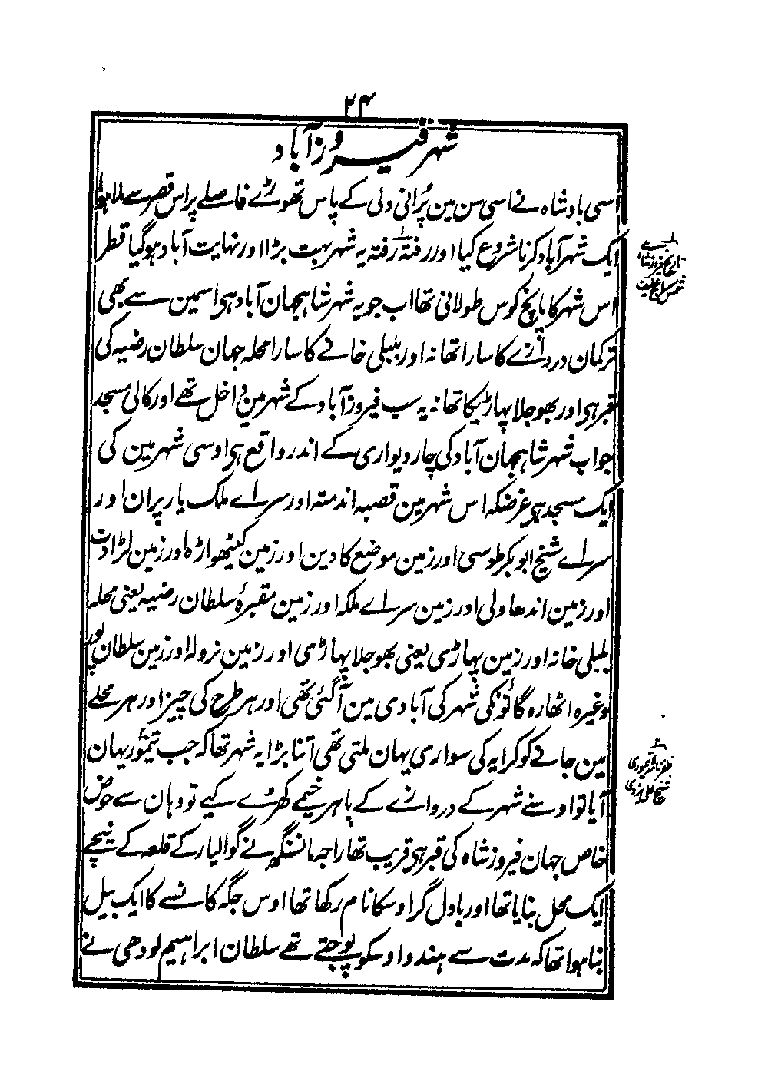 ۲۴
شہر فیروزآباد
اسی بادشاہ نے اسی سن مین پُرانی دلی کے پاس تھوڑے فاصلے پر اس قصر سے ملا ہوا
ایک شہر آباد کرنا شروع کیا اور رفتہ رفتہ یہ شہر بہت بڑا اور نہایت آباد ہوگیا قطر
اس شہر کا پانچ کوس طولانی تھا اب جو یہ شہر شاہجہان آباد ہی اسمین سے بھی
ترکمان دروازے کا سارا تھانہ اور بلبلی خانے کا سارا محلہ جہان سلطان رضیہ کی
قبر ہی اور بھوجلا پہاڑیکا تھانہ یہ سب فیروزآباد کے شہر مین داخل تھے اور کالی مسجد
جو اب شہر شاہجہان آباد کی چاردیواری کے اندر واقع ہی اوسی شہر مین کی
ایک مسجد ہی غرضکہ اس شہر مین قصبہ اندمتہ اور سراے ملک یارپران اور
سراے شیخ ابوبکر طوسی اور زمین موضع کادین اور زمین کیٹھواڑہ اور زمین لراوت
اور زمین اندھاولی اور زمین سراے ملکہ اور زمین مقبرۂ سلطان رضیہ یعنی محلہ
بلبلی خانہ اور زمین پہاڑی یعنی بھوجلا پہاڑی اور زمین نرولہ اور زمین سلطان پور
وغیرہ اٹھارہ گانوٴکی شہر کی آبادی مین آگئی تھی اور ہر طرح کی چیز اور ہر محلے
مین جانے کو کرایہ کی سواری یہان ملتی تھی اتنا بڑا یہ شہر تھا کہ جب تیمور یہان
آیا تو اوسنے شہر کے دروازے کے باہر خیمے کھڑے کیے تو وہان سے حوض
خاص جہان فیروزشاہ کی قبر ہی قریب تھا راجہ مانسنگہ نے گوالیار کے قلعہ کے نیچے
ایک محل بنایا تھا اور بادل گر اوسکا نام رکھا تھا اوس جگہ کانسے کا ایک بیل
بنا ہوا تھا کہ مدت سے ہندو اوسکو پوجتے تھے سلطان ابراہیم لودھی نے
تاریخ فیروزشاہی
شمس سراج عفیف
ظفرنامہ تیموری